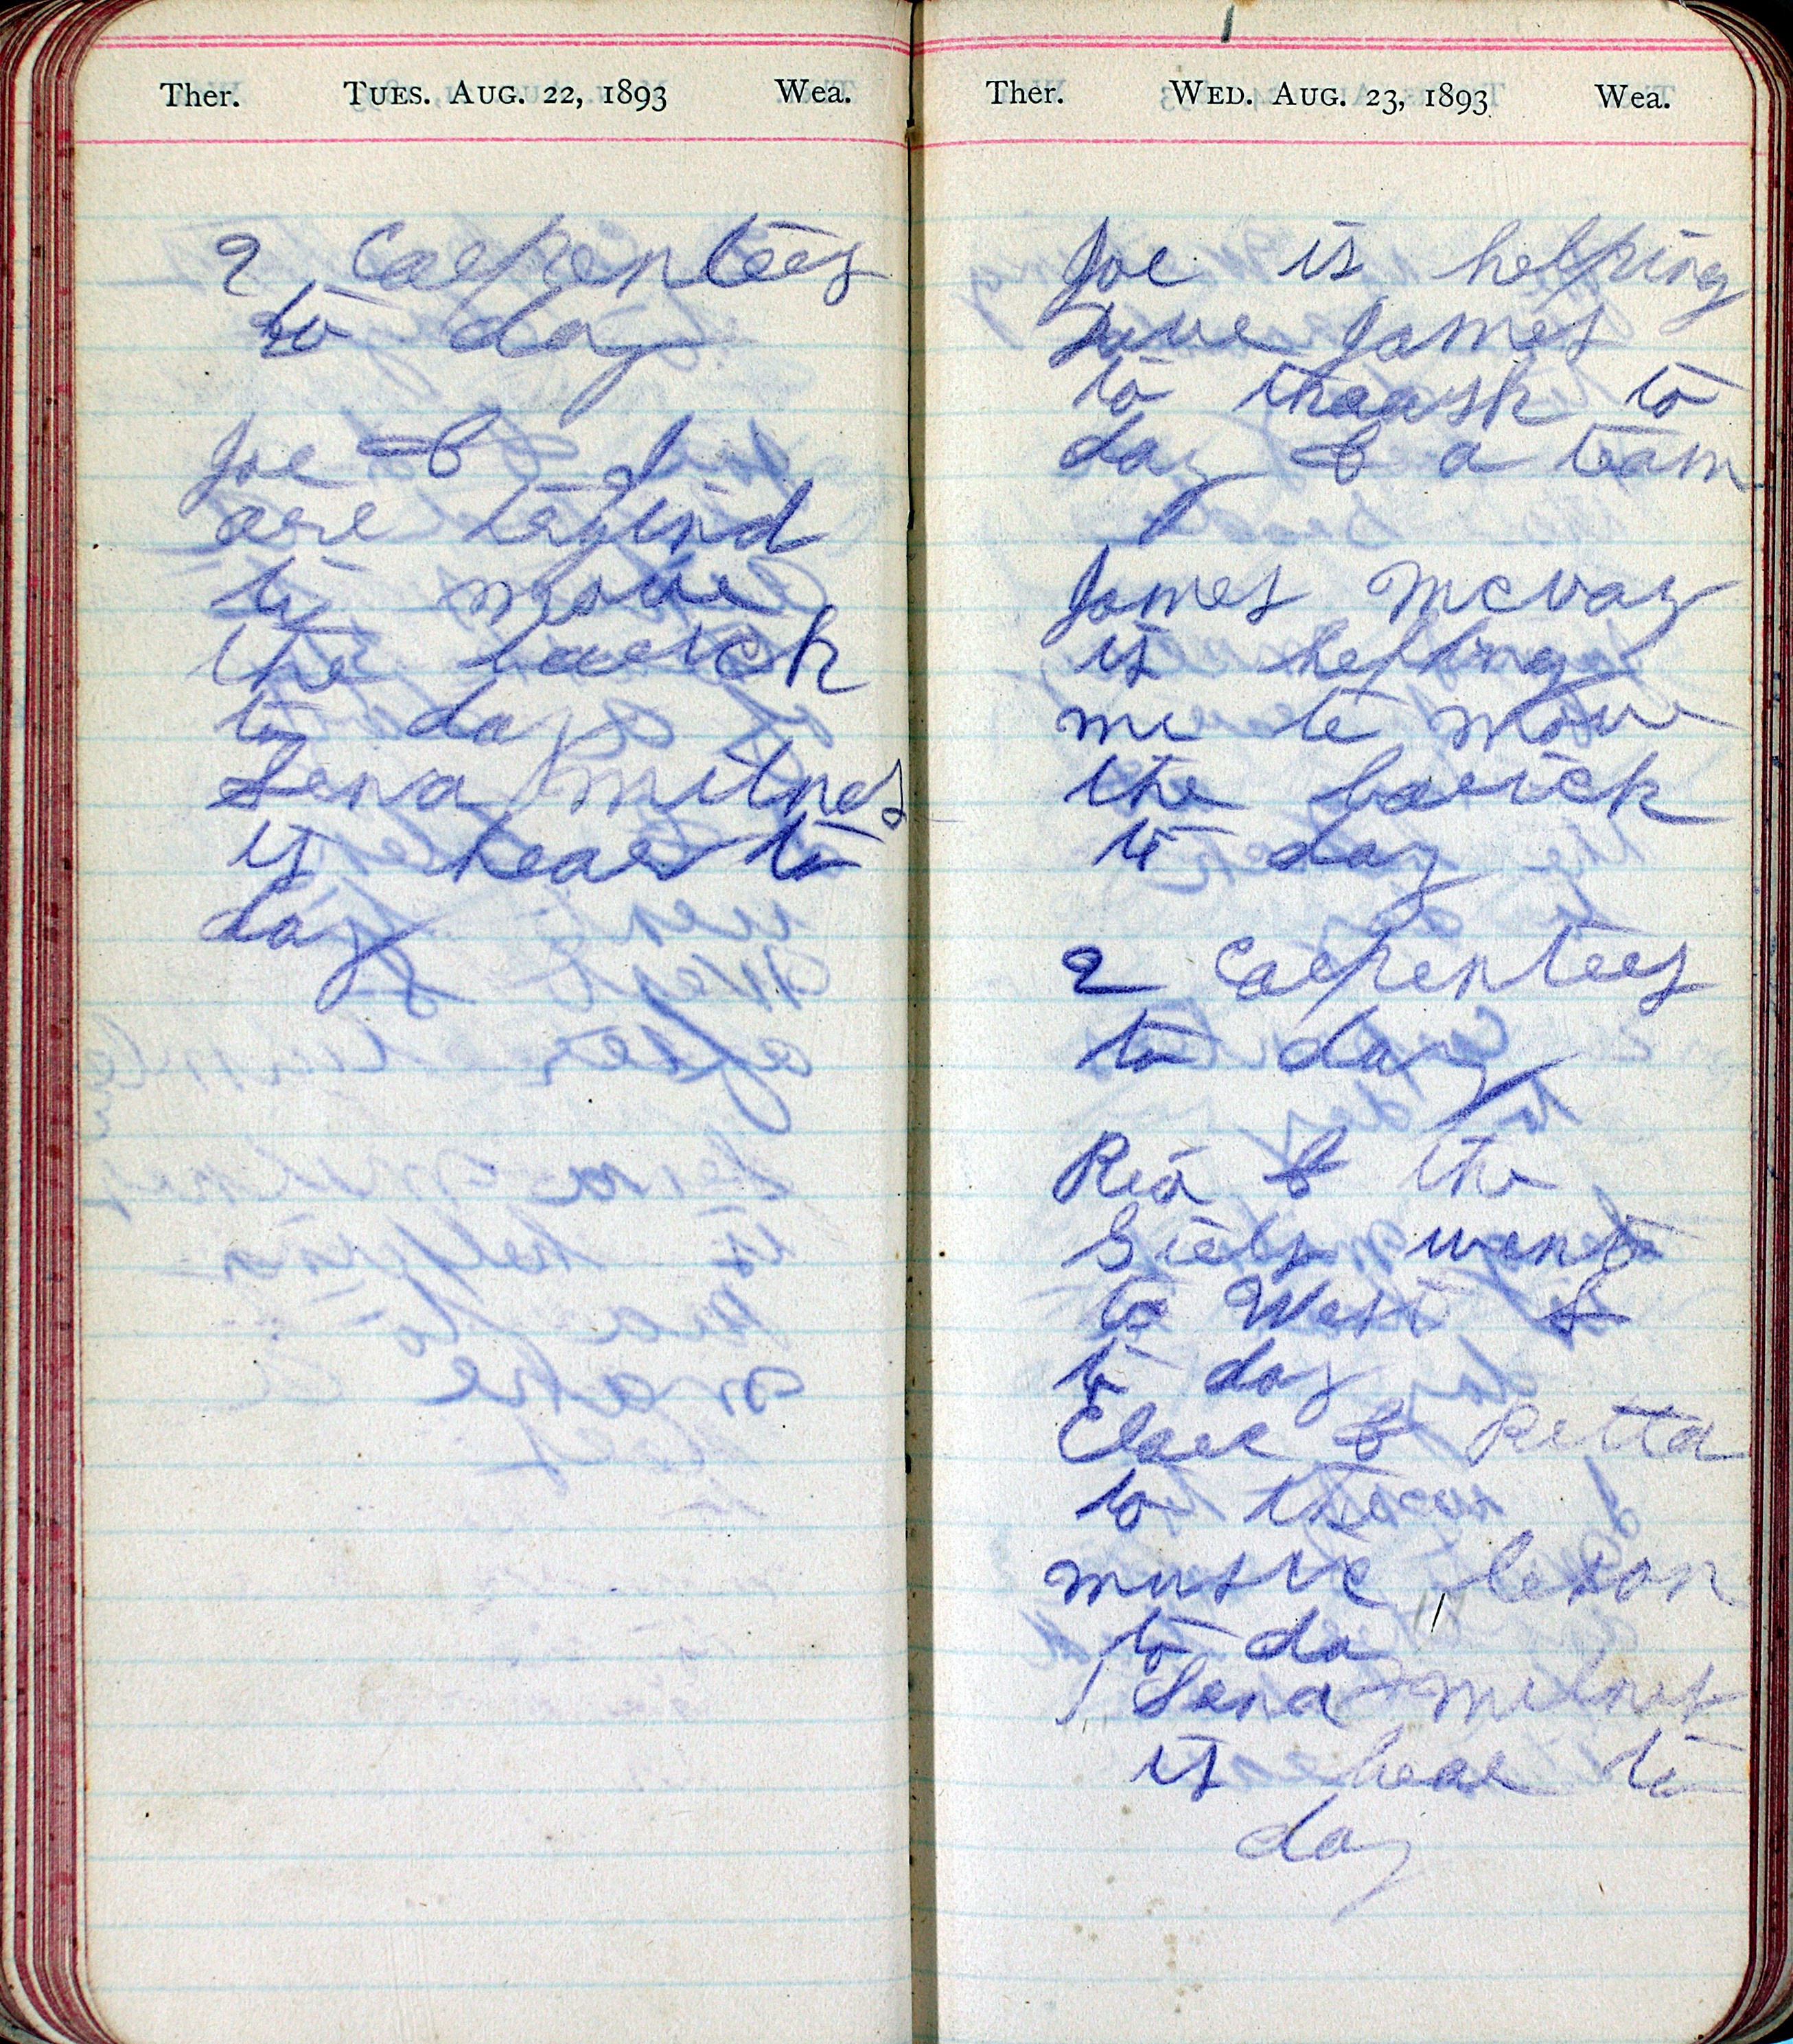 Ther. Tues. Aug. 22, 1893 Wea.
2 Carpenters
to day
Joe & I
are trying
to move
the barick
to day
Lena Milnes
is hear to
day
Ther. Wed. Aug. 23, 1893 Wea.
Joe is helping
Dave James
to thrash to
day & a team
James McVay
is helping
me to move
the barick
to day
2 Carpenters
to day
Ria & the
Girls went
to West L
to day
Clare & Retta
to thear
music leson
to da
Lena Milnes
is hear to
day